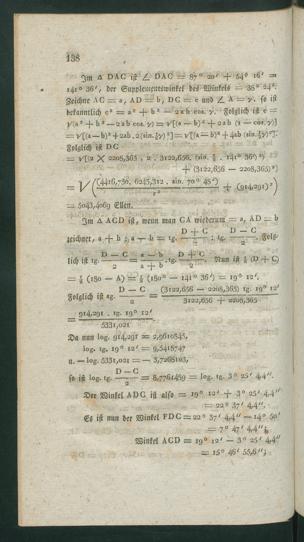 138
Im Δ DAC ist ∠ DAC = 87° 20' + 54° 16' =
141° 36', der Supplementswinkel des Winkels = 38° 24'.
Zeichne AC = a, AD = b, DC = c und ∠ A = γ, so ist
bekanntlich c² = a² + b² − 2ab cos. γ. Folglich ist c =
√(a² + b² − 2ab cos. γ) = √[(a − b)² + 2ab (1 − cos. γ)]
= √[(a − b)² + 2ab . 2(sin. ½γ)²] = √[(a − b)² + 4ab (sin. ½γ)²].
Folglich ist DC
= √[(2 × 2208,365 . 2 . 3122,656. (sin. ½ . 141° 36')²)
+ (3122,656 − 2208,365)²]
= √((4416,730, 6245,312 . sin. 70° 48')² + (914,291)²)
= 5043,4069 Ellen.
Im Δ ACD ist, wenn man CA wiederum = a, AD = b
zeichnet, a + b : a − b = tg. (D + C)/2 : tg. (D − C)/2. Folg-
lich ist tg. (D − C)/2 = (a − b)/(a + b) . tg. (D + C)/2. Nun ist ½ (D + C)
= ½ (180 − A) = ½ (180° − 141° 36') = 19° 12'.
Folglich ist tg. (D − C)/2 = (3122,656 − 2208,365) tg. 19° 12'/3122,656 + 2208,365
= 914,291 . tg. 19° 12'/5331,021
Da nun log. 914,291 = 2,9610845,
log. tg. 19° 12' = 9,5418747
u. − log. 5331,021 = − 3,7268103,
so ist log. tg. (D − C)/2 = 8,7761489 = log. tg. 3° 25' 4,4''.
Der Winkel ADC ist also = 19° 12' + 3° 25' 4,4''
= 22° 37' 4,4''.
Es ist nun der Winkel FDC = 22° 37' 4,4'' − 14° 50'
= 7° 47' 4,4'';
Winkel ACD = 19° 12' − 3° 25' 4,4''
= 15° 46' 55,6'';